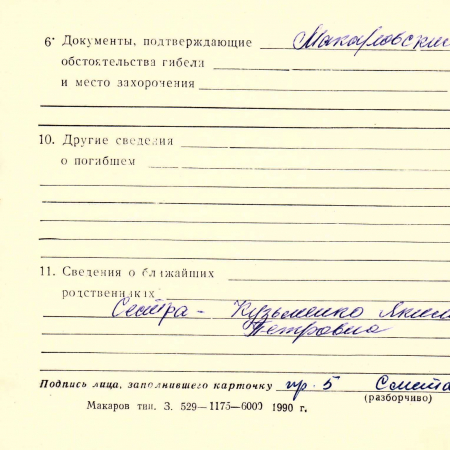 6· Документы, подтверждающие Макаловский
обстоятельства гибели
и место захоронения
10. Другие сведения
о погибшем
11. Сведения о ближайших
родственниках
Сестра - Кузьменко
Петровна
Подпись лица, заполнившего карточку пр. 5 Смета
Макаров тип. З. 529—1175—6000 1990 г. (разборчиво)